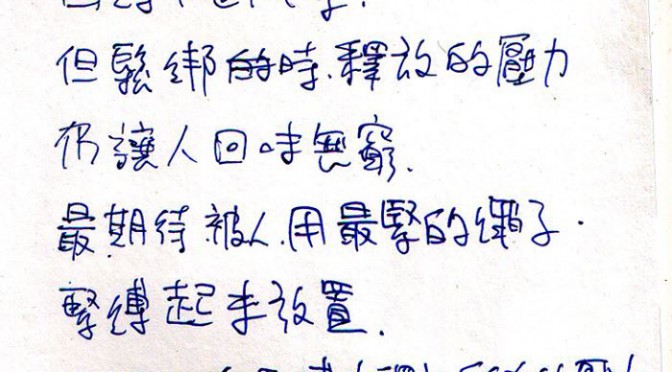 但鬆綁時.釋放的壓力
仍讓人回味無窮.
最期待被人.用最緊的繩子.
緊縛起來放置.